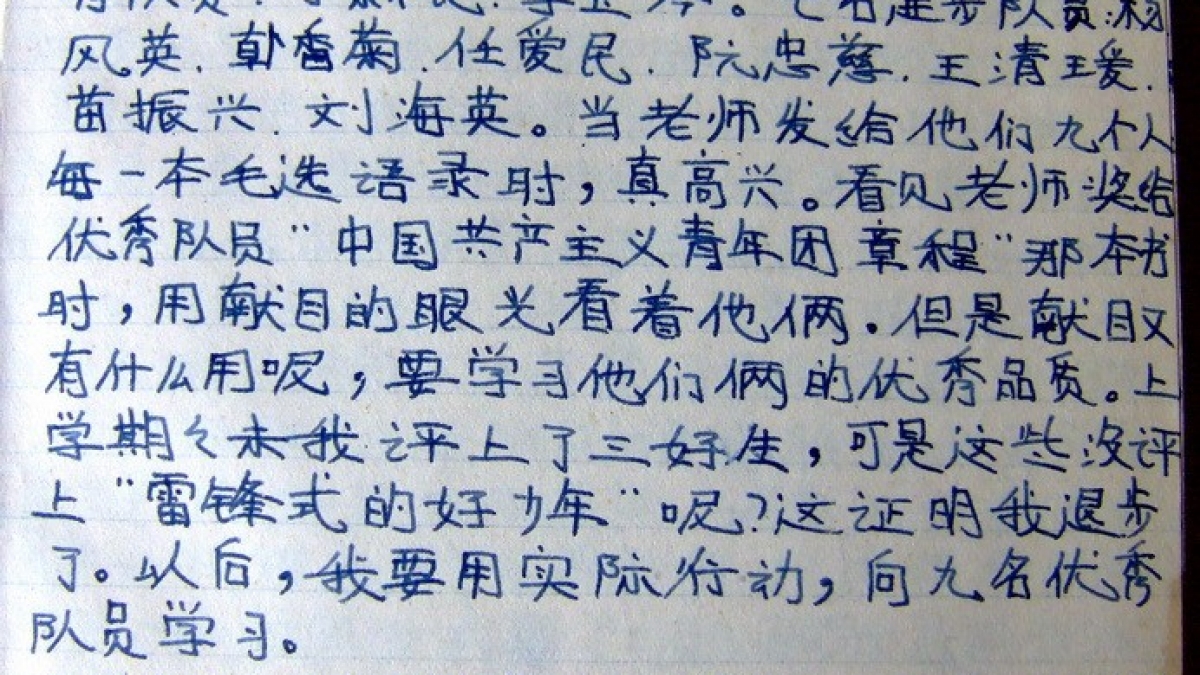 七名进步队员:杨
风英.郭香菊.任爱民.阮忠慈.王清瑷.
苗振兴.刘海英。当老师发给他们九个人
每一本毛选语录时,真高兴。看见老师奖给
优秀队员“中国共产主义青年团章程”那本书
时,用献目的眼光看着他俩.但是献目又
有什么用呢,要学习他们俩的优秀品质。上
学期々末我评上了三好生,可是这些没评
上“雷锋式的好少年”呢?这证明我退步
了。以后,我要用实际行动,向九名优秀
队员学习。